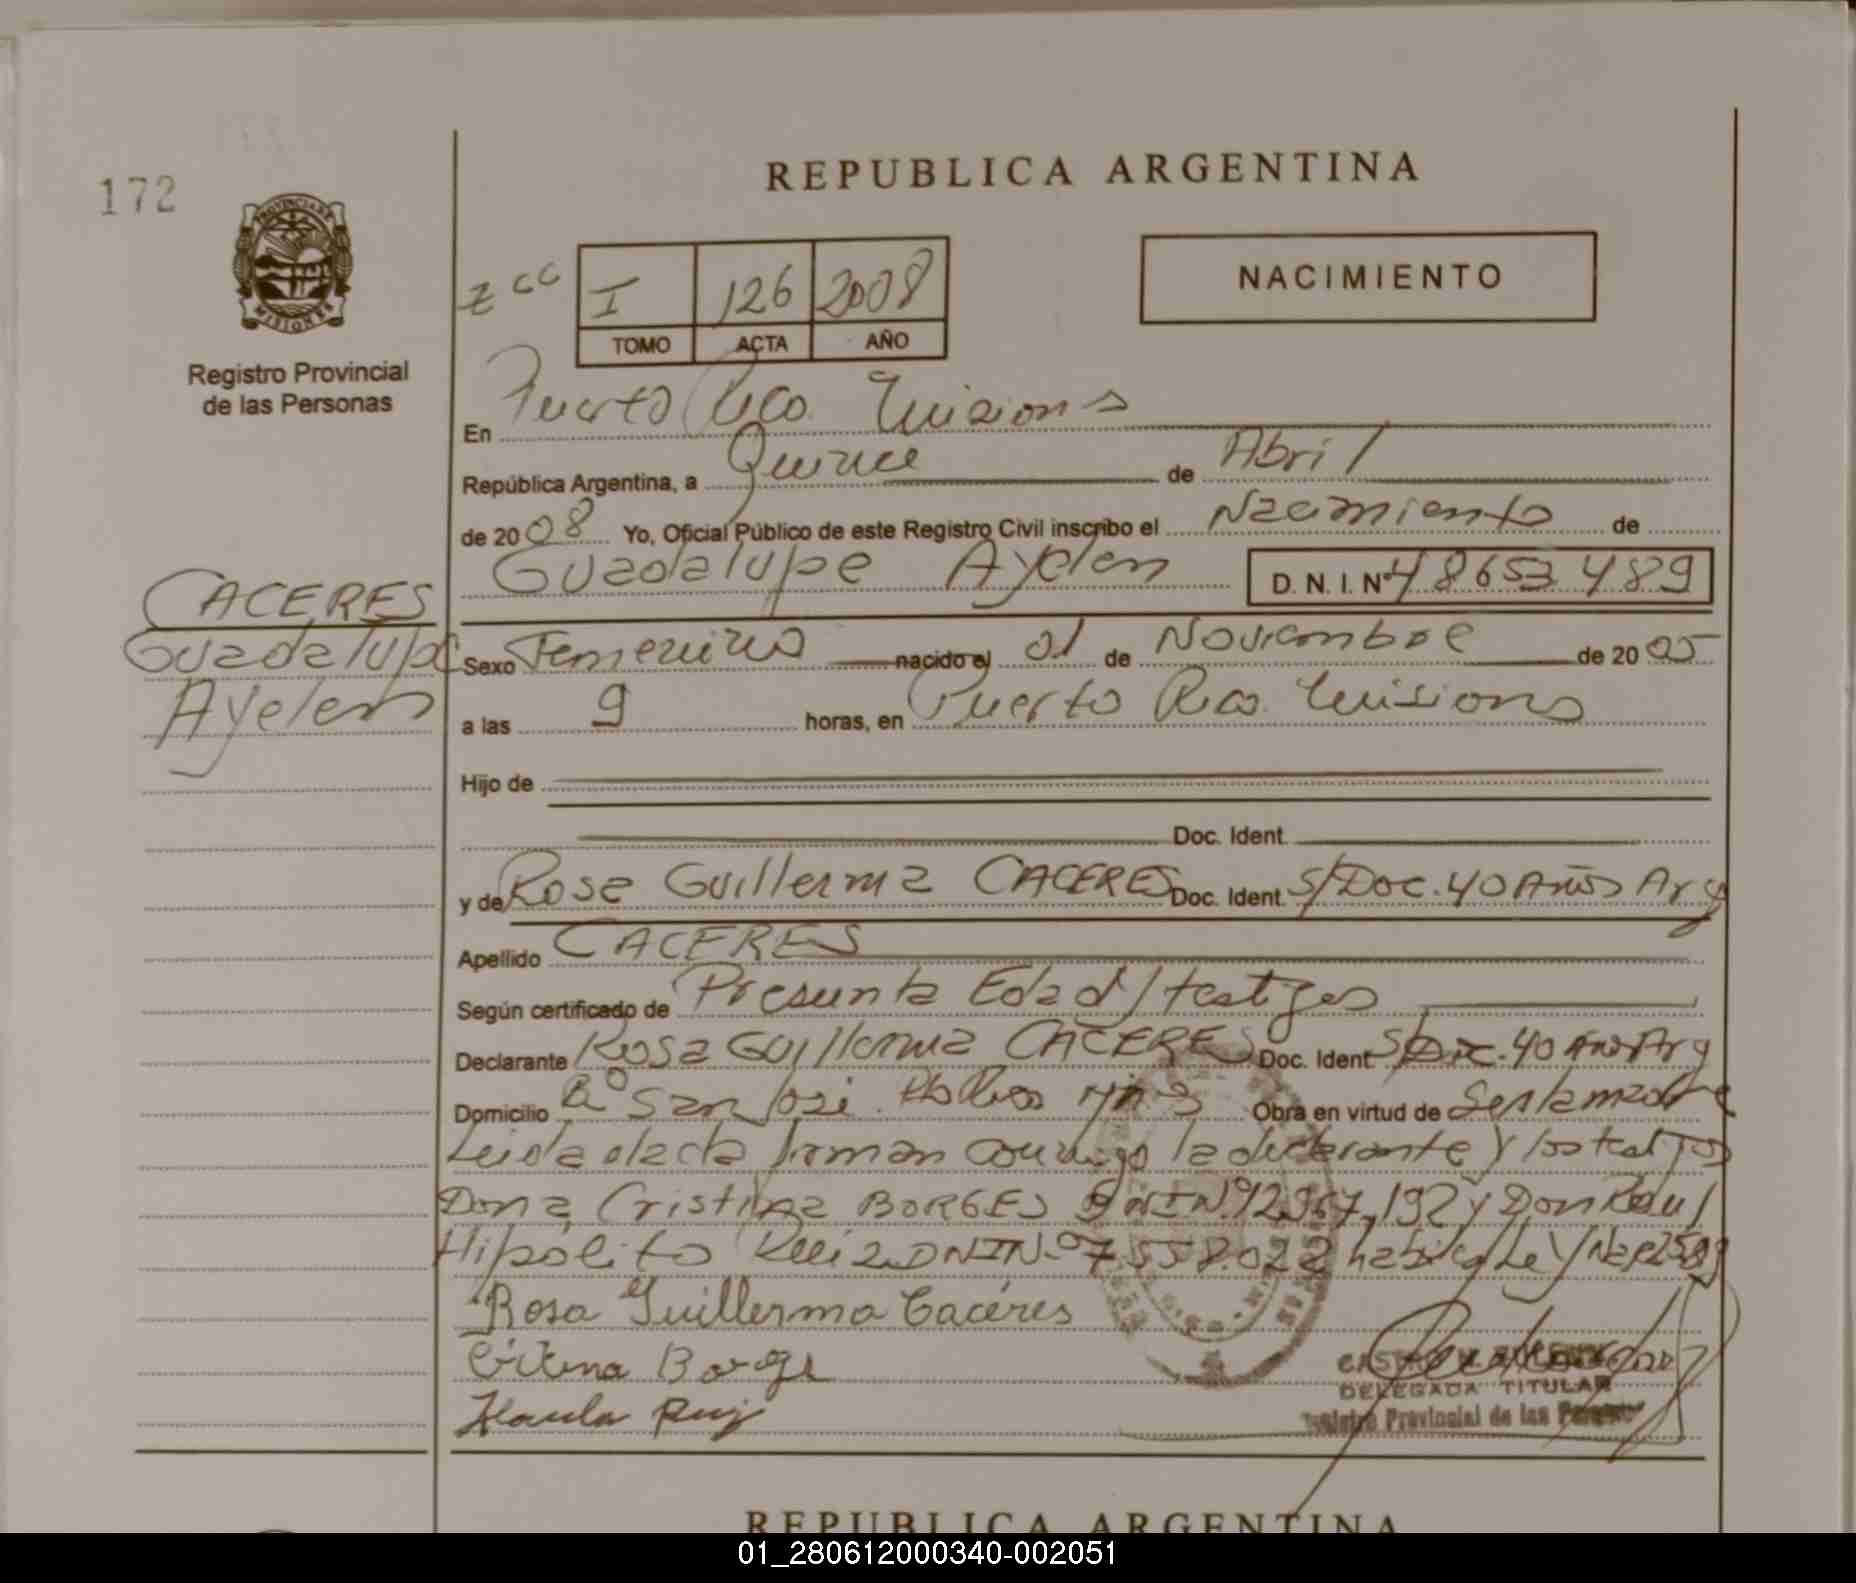 172
PROVINCIA DE
MISIONES
Registro Provincial
de las Personas
CACERES
Guadalupe
Ayelen
REPUBLICA ARGENTINA
I 126 2008
TOMO ACTA AÑO
NACIMIENTO
En Puerto Rico Misiones
República Argentina, a Quince de Abril
de 2008 Yo, Oficial Público de este Registro Civil inscribo el Nacimiento de
Guadalupe Ayelen D. N. I. Nº 48653489
Sexo Femenino nacido el 01 de Noviembre de 2005
a las 9 horas, en Puerto Rico Misiones
Hijo de
Doc. Ident.
y de Rosa Guillerma CACERES Doc. Ident. S/Doc. 40 Años Arg
Apellido CACERES
Según certificado de Presunta Edad/testigos
Declarante Rosa Guillerma CACERES Doc. Ident S/Doc. 40 Años Arg
Domicilio Bº San José Pto Rico Mnes Obra en virtud de ser la madre
Leida el acta firman conmigo la declarante y los testigos
Dona Cristina BORGES DNI Nº 12.967.192 y Don Raul
Hipólito Ruiz DNI Nº 7.558.022 habil
Rosa Guillerma Caceres
Borge
Ruiz
DELEGADA TITULAR
Registro Provincial de las Personas
REPUBLICA ARGENTINA
01_280612000340-002051